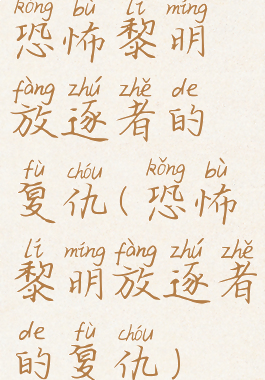 kǒng bù lí míng
恐怖黎明
fàng zhú zhě de
放逐者的
fù chóu kǒng bù
复仇(恐怖
lí míng fàng zhú zhě
黎明放逐者
de fù chóu
的复仇)